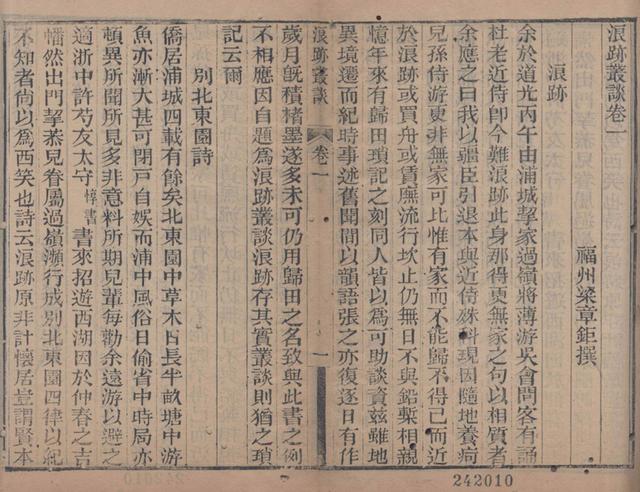 浪跡叢談卷一
福州梁章鉅撰
浪跡
余於道光丙午由浦城挈家過嶺將薄游吳會問客有誦
杜老近侍卽今難浪跡此身那得更無家之句以相質者
余應之曰我以疆臣引退本與近侍殊科現因隨地養疴
兒孫侍游更非無家可比惟有家而不能歸不得已而近
於浪跡或買舟或賃廡流行坎止仍無日不與鉛槧相親
憶年來有歸田瑣記之刻同人皆以爲可助談資茲雖地
異境遷而紀時事述舊聞間以韻語張之亦復逐日有作
浪跡叢談
卷一
一
歲月旣積楮墨遂多未可仍用歸田之名致與此書之例
不相應因自題爲浪跡叢談浪跡存其實叢談則猶之瑣
記云爾
別北東園詩
僑居浦城四載有餘矣北東園中草木日長半畝塘中游
魚亦漸大甚可閉戸自娱而浦中風俗日偷省中時局亦
頓異所聞所見多非意料所期兒輩每勸余遠游以避之
適浙中許芍友太守惇書書來招遊西湖因於仲春之吉
幡然出門挈荼兒眷屬過嶺瀕行成別北東園四律以紀
不知者尙以爲西笑也詩云浪跡原非計懷居豈謂賢本
242010